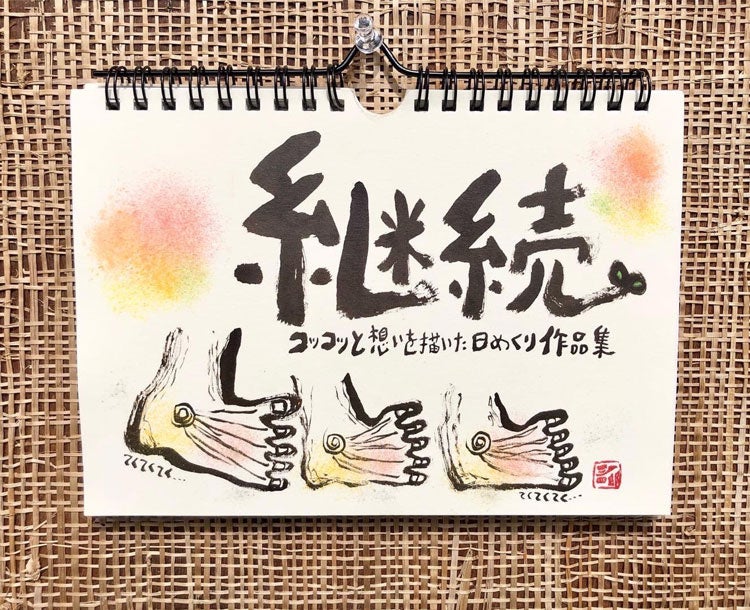 継続
コツコツと想いを描いた日めくり作品集
てくてくてく…
てくてくてく…